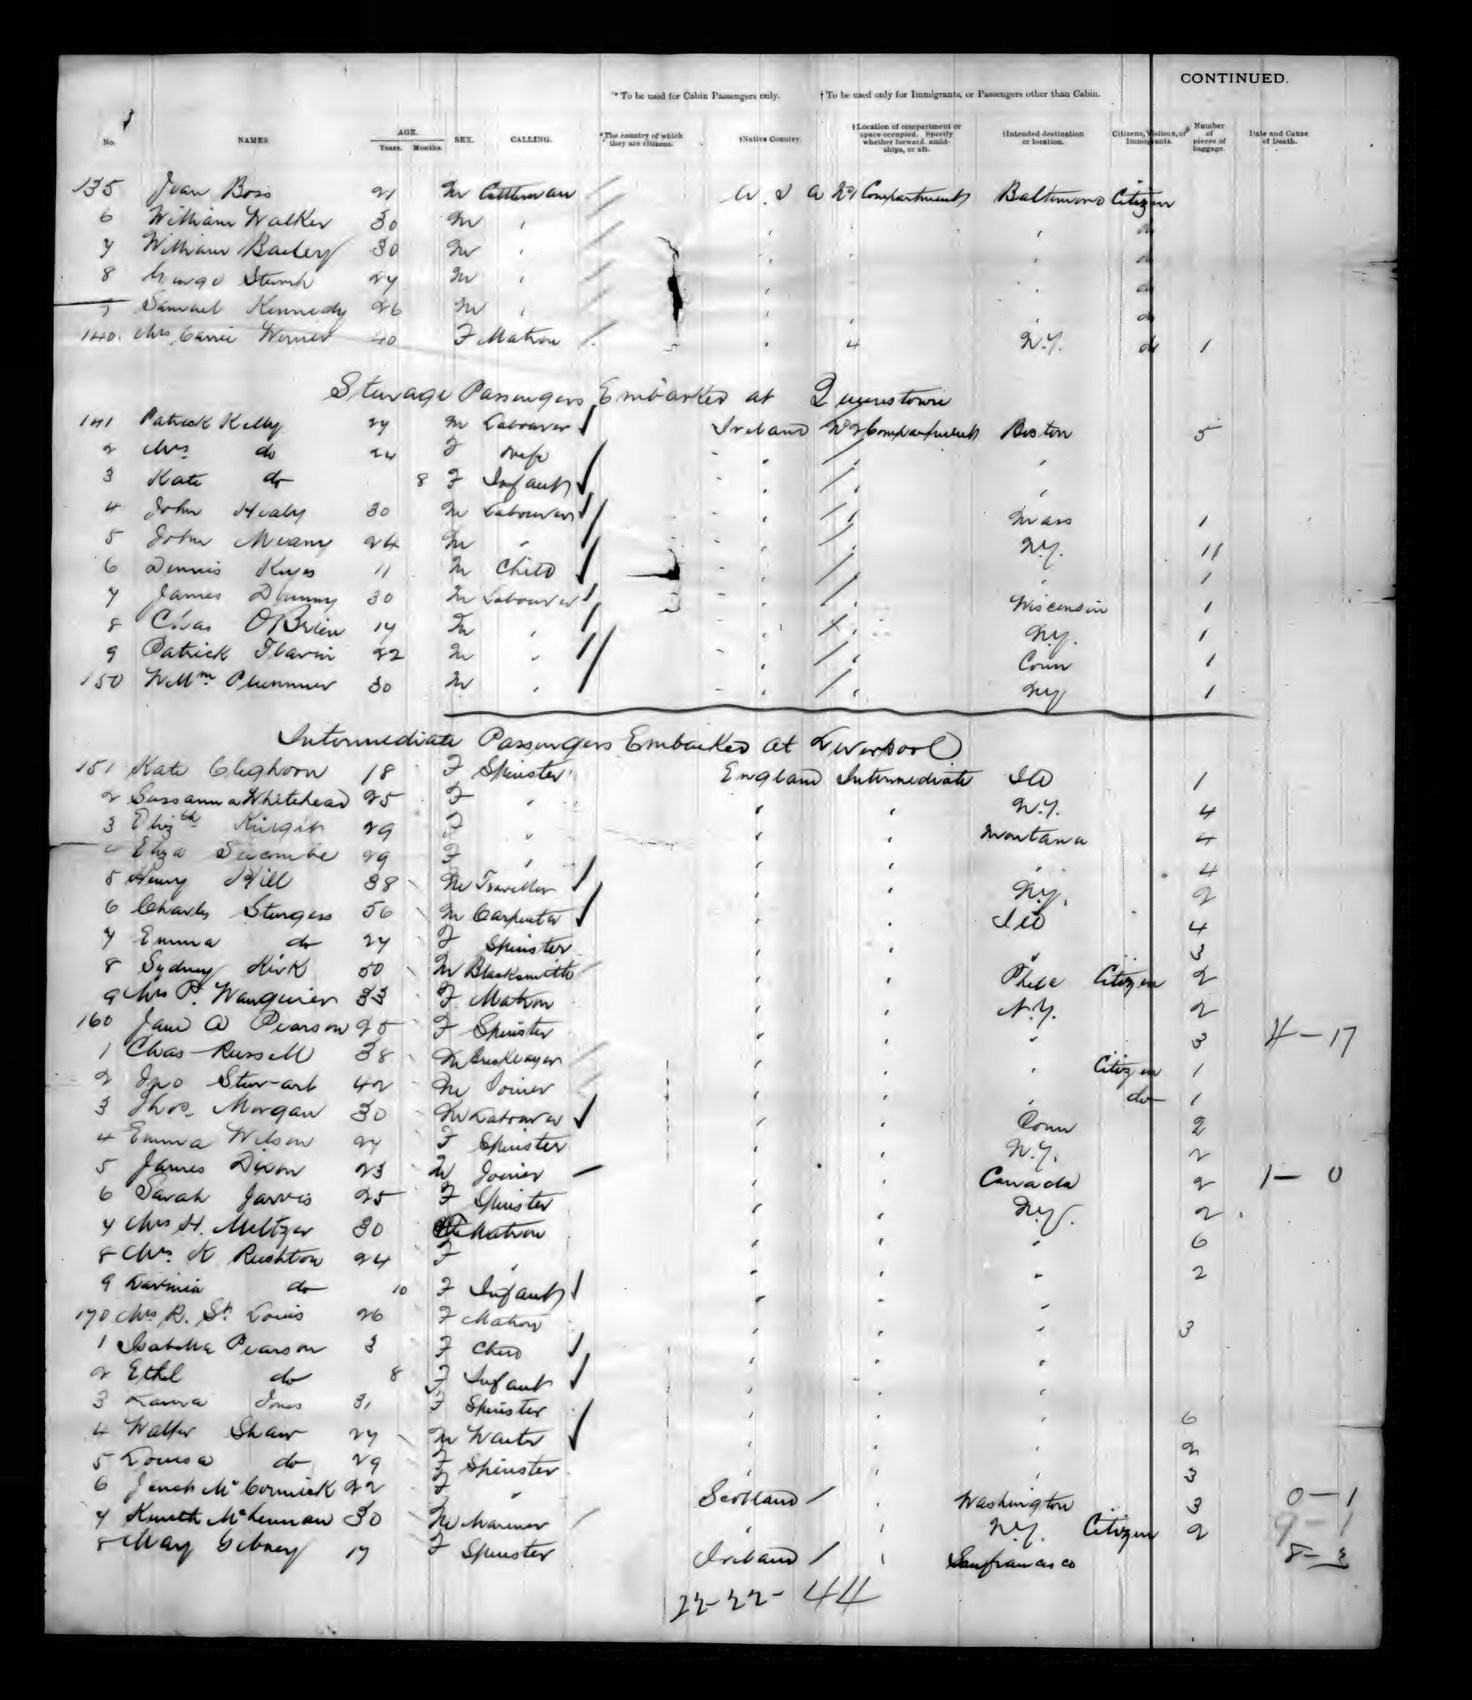 CONTINUED.
* To be used for Cabin Passengers only. † To be used only for Immigrants, or Passengers other than Cabin.
No. NAMES. AGE. Years. Months. SEX. CALLING. *The country of which they are citizens. †Native Country. †Location of compartment or space occupied. Specify whether forward, amidships, or aft. †Intended destination or location. Citizens, Visitors, or Immigrants. Number of pieces of baggage. Date and Cause of Death.
135 Boss 21 M Cattleman U.S.A Compartment Baltimore Citizen
6 William Walker 30 M " " " " do
7 William Bailey 30 M " " " " do
8 27 M " " " " do
9 Samuel Kennedy 26 M " " " " do
140 Mrs Carrie Werner 40 F Matron " 4 N.Y. do 1
Steerage Passengers Embarked at Queenstown
141 Patrick Kelly 27 M Labourer Ireland No 2 Compartment Boston 5
2 Mrs do 24 F Wife " " "
3 Kate do 8 F Infant " " "
4 John Healy 30 M Labourer " " Mass 1
5 John Meany 24 M " " " N.Y. 11
6 Dennis Keyes 11 M Child " " " 1
7 James 30 M Labourer " " Wisconsin 1
8 Chas OBrien 17 M " " " N.Y. 1
9 Patrick Flavin 22 M " " " Conn 1
150 Willm Plummer 30 M " " " NY 1
Intermediate Passengers Embarked at Liverpool
151 Kate Cleghorn 18 F Spinster England Intermediate 1
2 Sussanna Whitehead 25 F " " " N.Y. 4
3 Elizth 29 F " " " Montana 4
4 Eliza Secombe 29 F " " " " 4
5 Henry Hill 38 M Traveller " " N.Y. 2
6 Charles Sturgess 56 M Carpenter " " 4
7 Emma do 27 F Spinster " " " 3
8 Sydney Kirk 50 M Blacksmith " " Phila Citizen 2
9 Mrs P. 33 F Matron " " N.Y. 2
160 Jane A Pearson 25 F Spinster " " " 3 4-17
1 Chas Russell 38 M Bricklayer " " " Citizen 1
2 Jno Stewart 42 M Joiner " " " do 1
3 Thos. Morgan 30 M Labourer " " Conn 2
4 Emma Wilson 27 F Spinster " " N.Y. 2
5 James Dixon 23 M Joiner " " Canada 2 1-0
6 Sarah Jarvis 25 F Spinster " " N.Y. 2
7 Mrs H. Meltzer 30 Matron " " " 6
8 Mrs K Rushton 24 F " " " " 2
9 Lavinia do 10 F Infant " " "
170 Mrs R. St. Louis 26 F Matron " " " 3
1 Isabella Pearson 3 F Child " " "
2 Ethel do 8 F Infant " " "
3 Laura Jones 31 F Spinster " " " 6
4 Walter Shaw 27 M Waiter " " " 2
5 Louisa do 29 F Spinster " " " 3
6 McCormick 22 F " Scotland " Washington 3 0-1
7 Kenneth McLennan 30 M Mariner " " N.Y. Citizen 2 9-1
8 May Gibney 17 F Spinster Ireland " Sanfrancisco 8-3
22-22-44